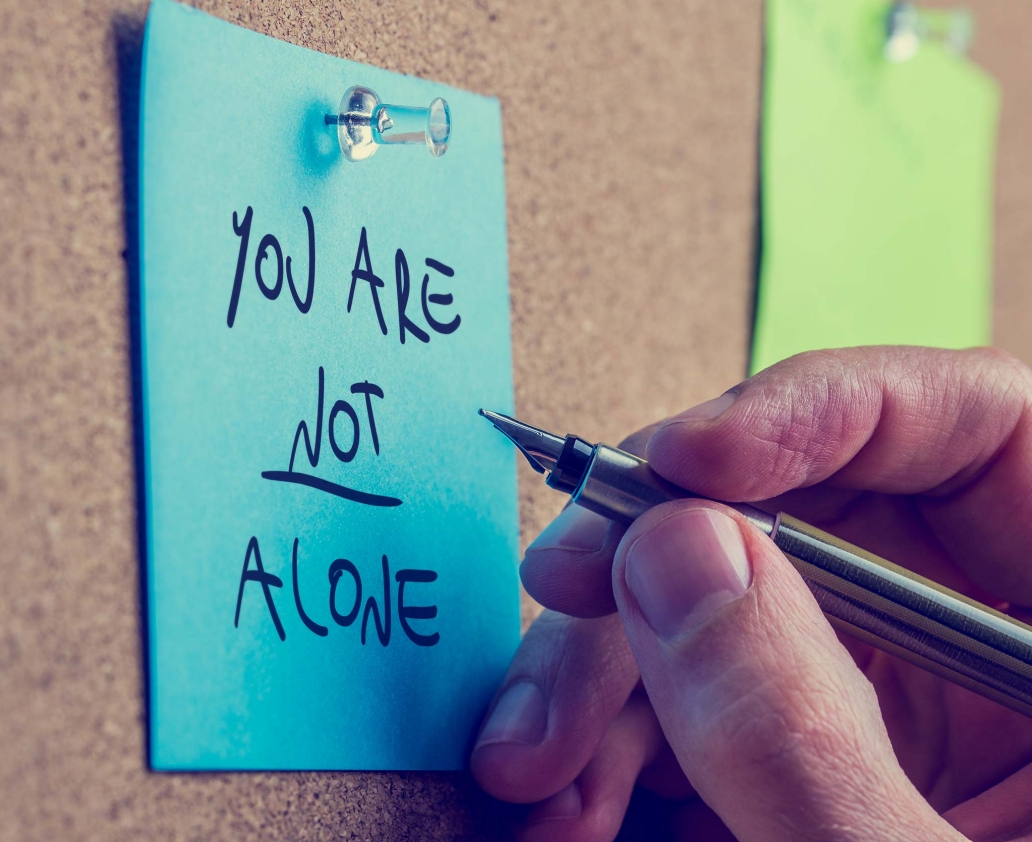 YOU ARE
NOT
ALONE